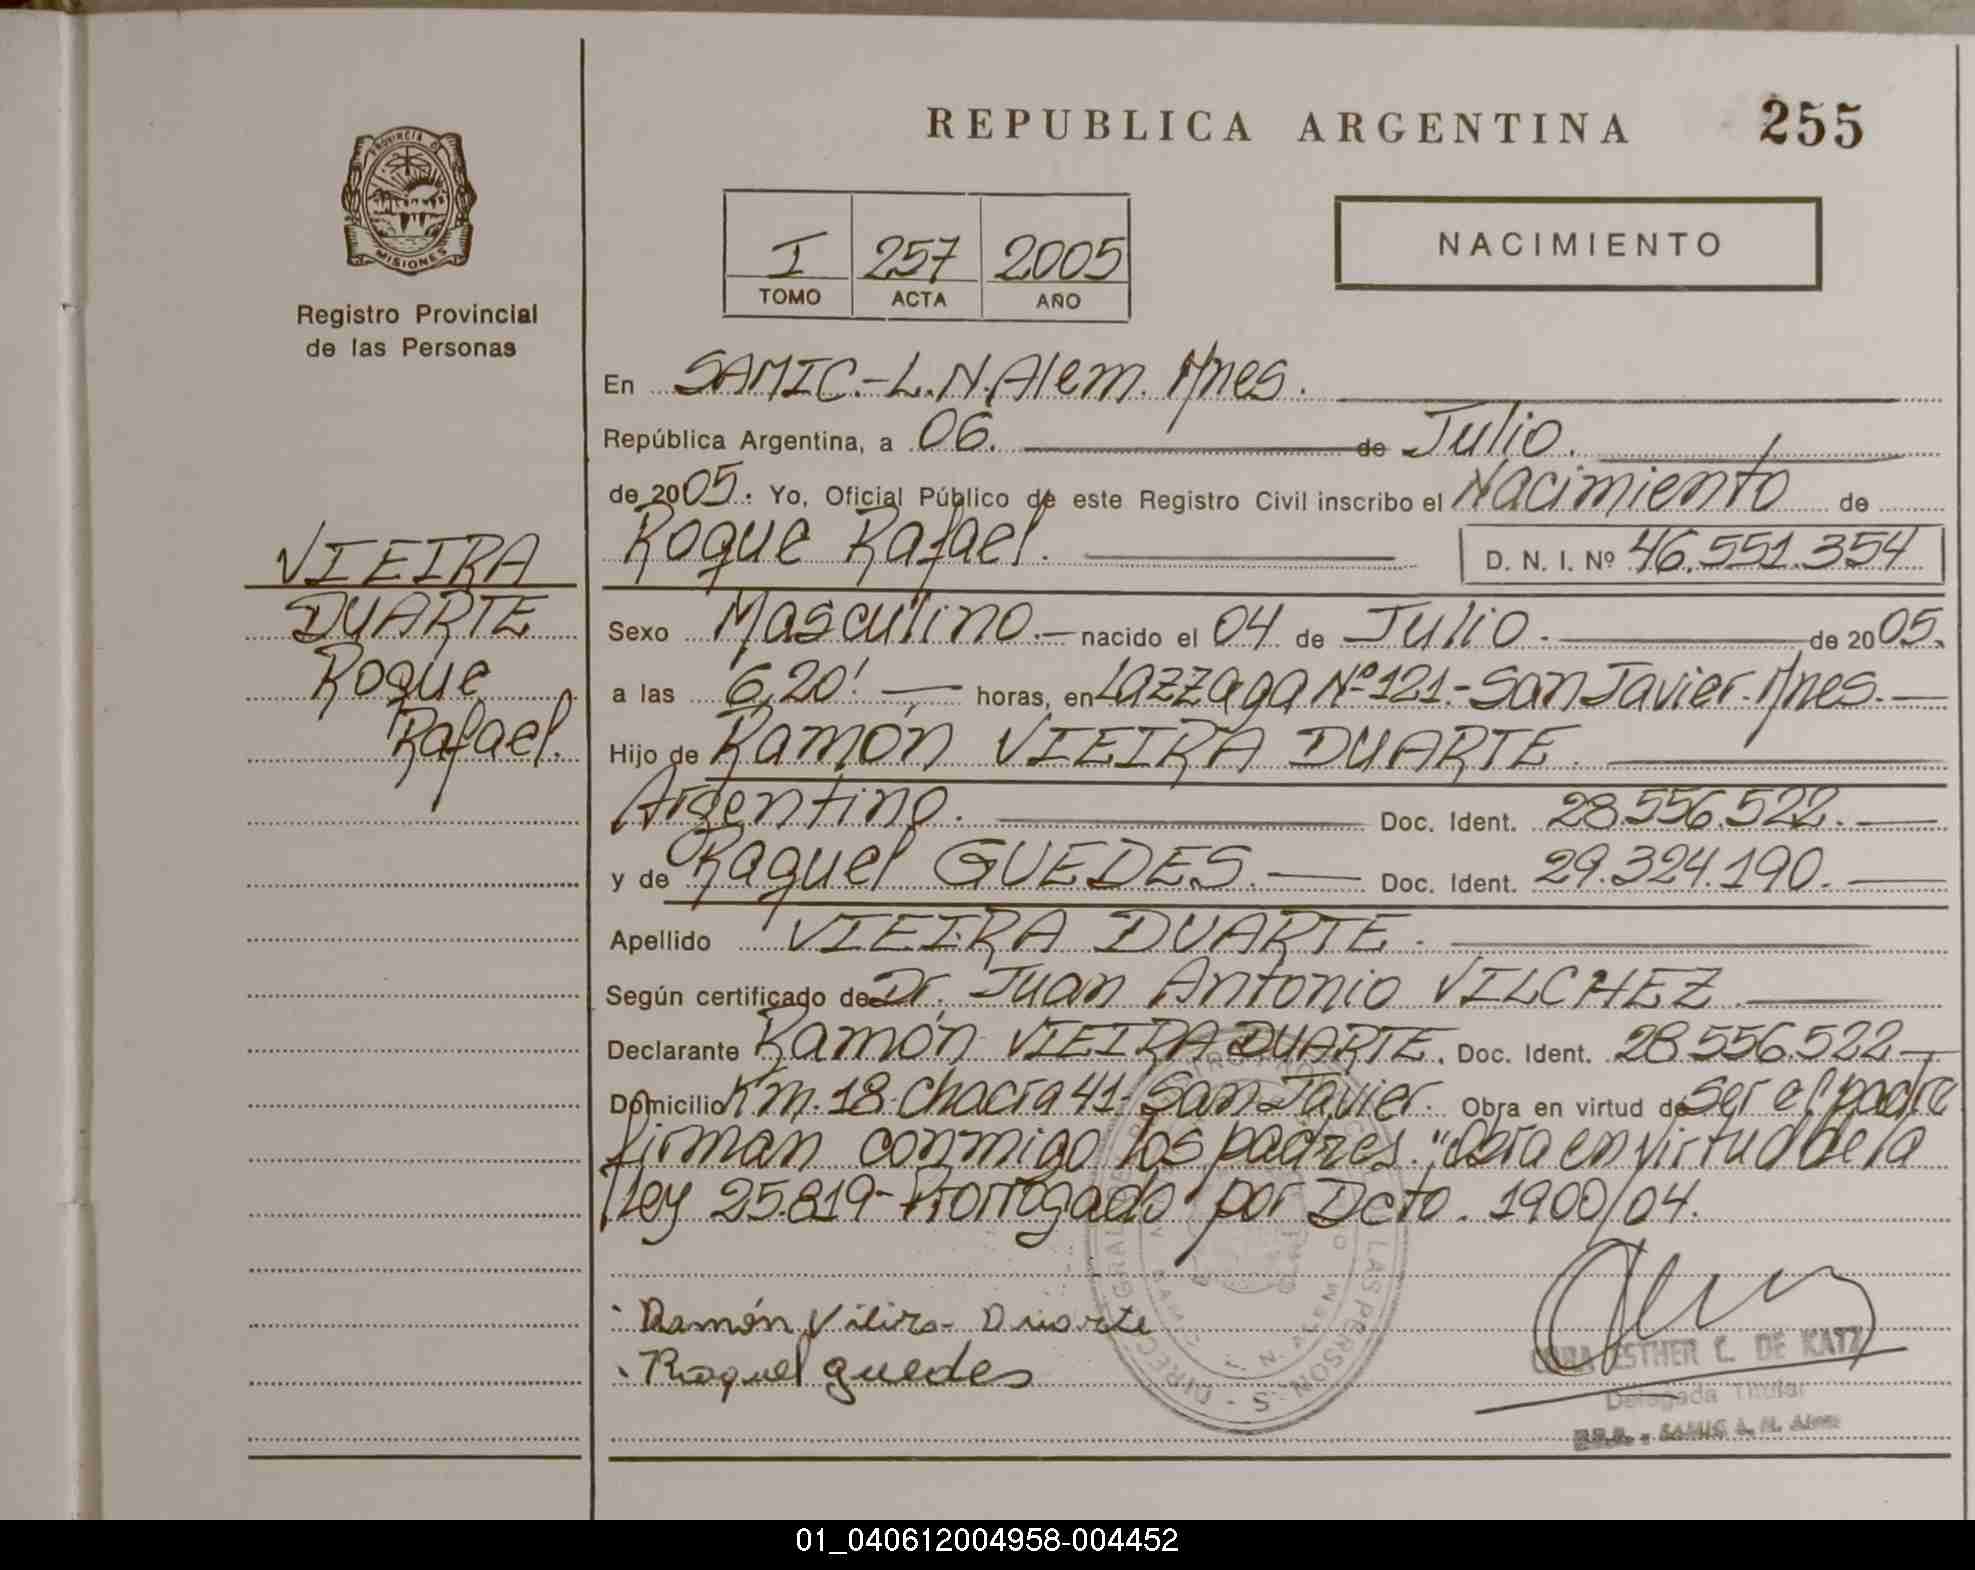 REPUBLICA ARGENTINA 255
PROVINCIA DE
MISIONES
Registro Provincial
de las Personas
I 257 2005
TOMO ACTA AÑO
NACIMIENTO
En SAMIC.-L.N.Alem. Mnes.
República Argentina, a 06. de Julio.
de 2005. Yo, Oficial Público de este Registro Civil inscribo el Nacimiento de
Roque Rafael. D. N. I. Nº 46.551.354
VIEIRA
DUARTE
Roque
Rafael.
Sexo Masculino.- nacido el 04 de Julio. de 2005.
a las 6,20'. horas, en Lazzaga Nº 121.- San Javier. Mnes.
Hijo de Ramón VIEIRA DUARTE.
Argentino. Doc. Ident. 28.556.522.
y de Raquel GUEDES. Doc. Ident. 29.324.190.
Apellido VIEIRA DUARTE.
Según certificado de Dr. Juan Antonio VILCHEZ.
Declarante Ramón VIEIRA DUARTE. Doc. Ident. 28.556.522
Domicilio Km.18. Chacra 41- San Javier. Obra en virtud de ser el padre
firman conmigo los padres. "Obra en virtud de la
Ley 25.819- Prorrogado por Dcto. 1900/04.
Ramón Vieira Duarte
Raquel guedes
CORA ESTHER C. DE KATZ
Delegada Titular
SAMIC L. N. Alem
01_040612004958-004452